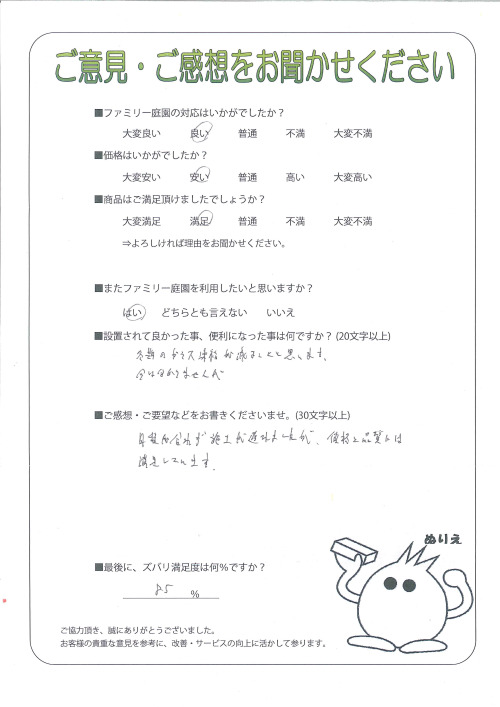 ご意見・ご感想をお聞かせください
■ファミリー庭園の対応はいかがでしたか？
大変良い 良い 普通 不満 大変不満
■価格はいかがでしたか？
大変安い 安い 普通 高い 大変高い
■商品はご満足頂けましたでしょうか？
大変満足 満足 普通 不満 大変不満
⇒よろしければ理由をお聞かせください。
■またファミリー庭園を利用したいと思いますか？
はい どちらとも言えない いいえ
■設置されて良かった事、便利になった事は何ですか？(20文字以上)
冬期のガラス凍結が減ることと思います。
今はわかりませんが
■ご感想・ご要望などをお書きくださいませ。(30文字以上)
施工が遅れましたが、価格と品質には
満足しています。
ぬりえ
■最後に、ズバリ満足度は何％ですか？
85 ％
ご協力頂き、誠にありがとうございました。
お客様の貴重な意見を参考に、改善・サービスの向上に活かして参ります。